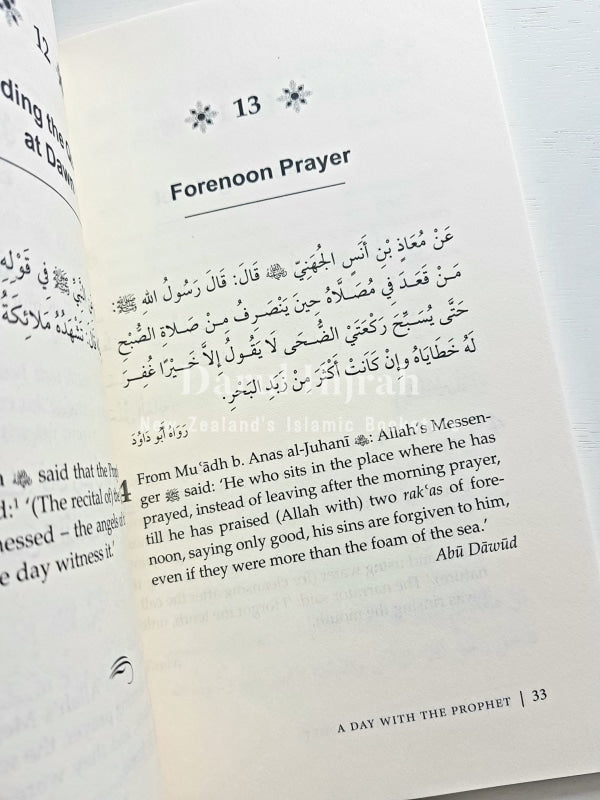 12
ding the
at Dawn
في قَوْلِهِ
تَشْهَدُهُ مَلَائِكَةُ
said that the
(The recital of) the
nessed – the angels of
e day witness it.'
13
Forenoon Prayer
عَنْ مُعَاذِ بْنِ أَنَسٍ الجُهَنِيِّ ﷺ قَالَ: قَالَ رَسُولُ اللهِ ﷺ:
مَنْ قَعَدَ فِي مُصَلَّاهُ حِينَ يَنْصَرِفُ مِنْ صَلاةِ الصُّبْحِ
حَتَّى يُسَبِّحَ رَكْعَتَيْ الضُّحَى لَا يَقُولُ إِلاَّ خَيْرًا غُفِرَ
لَهُ خَطَايَاهُ وإِنْ كَانَتْ أَكْثَرَ مِنْ زَبَدِ البَحْرِ.
رَوَاهُ أبو دَاوُد
Darul Hijrah
New Zealand's Islamic
From Muʿādh b. Anas al-Juhanī: Allah's Messen-
ger ﷺ said: 'He who sits in the place where he has
prayed, instead of leaving after the morning prayer,
till he has praised (Allah with) two rakʿas of fore-
noon, saying only good, his sins are forgiven to him,
even if they were more than the foam of the sea.'
Abū Dāwūd
A DAY WITH THE PROPHET | 33